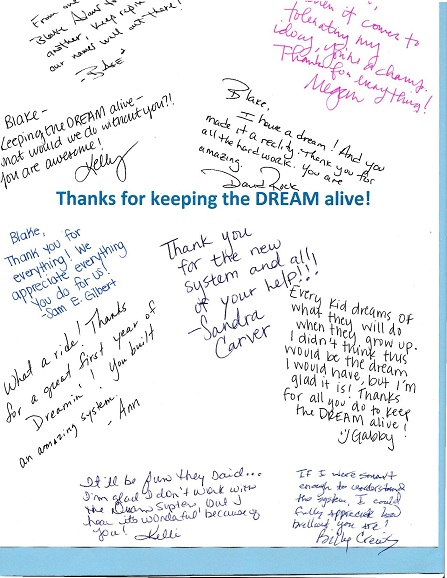 From one
Blake Adams to
another, keep repin
our names well out there!
- Blake
it comes to
tolerating my
ideas, you're a champ.
Thanks for everything!
Megan
Blake -
Keeping the DREAM alive -
what would we do without you?!
You are awesome!
Kelly
Blake,
I have a dream! And you
made it a reality. Thank you for
all the hard work. You are
amazing.
David Rock
Thanks for keeping the DREAM alive!
Blake,
Thank you for
everything! We
appreciate everything
you do for us!
-Sam E. Gilbert
Thank you
for the new
system and all
of your help!!!
-Sandra
Carver
What a ride! Thanks
for a great first year of
Dreamin'! You built
an amazing system.
- Ann
Every kid dreams of
what they will do
when they grow up.
I didn't think this
would be the dream
I would have, but I'm
glad it is! Thanks
for all you do to keep
the DREAM alive!
:) Gabby
It'll be fun they said...
I'm glad I don't work with
the Dream System but I
hear it's wonderful because of
you! Kelli
If I were smart
enough to understand
the system, I could
fully appreciate how
brilliant you are!
Billy Crews